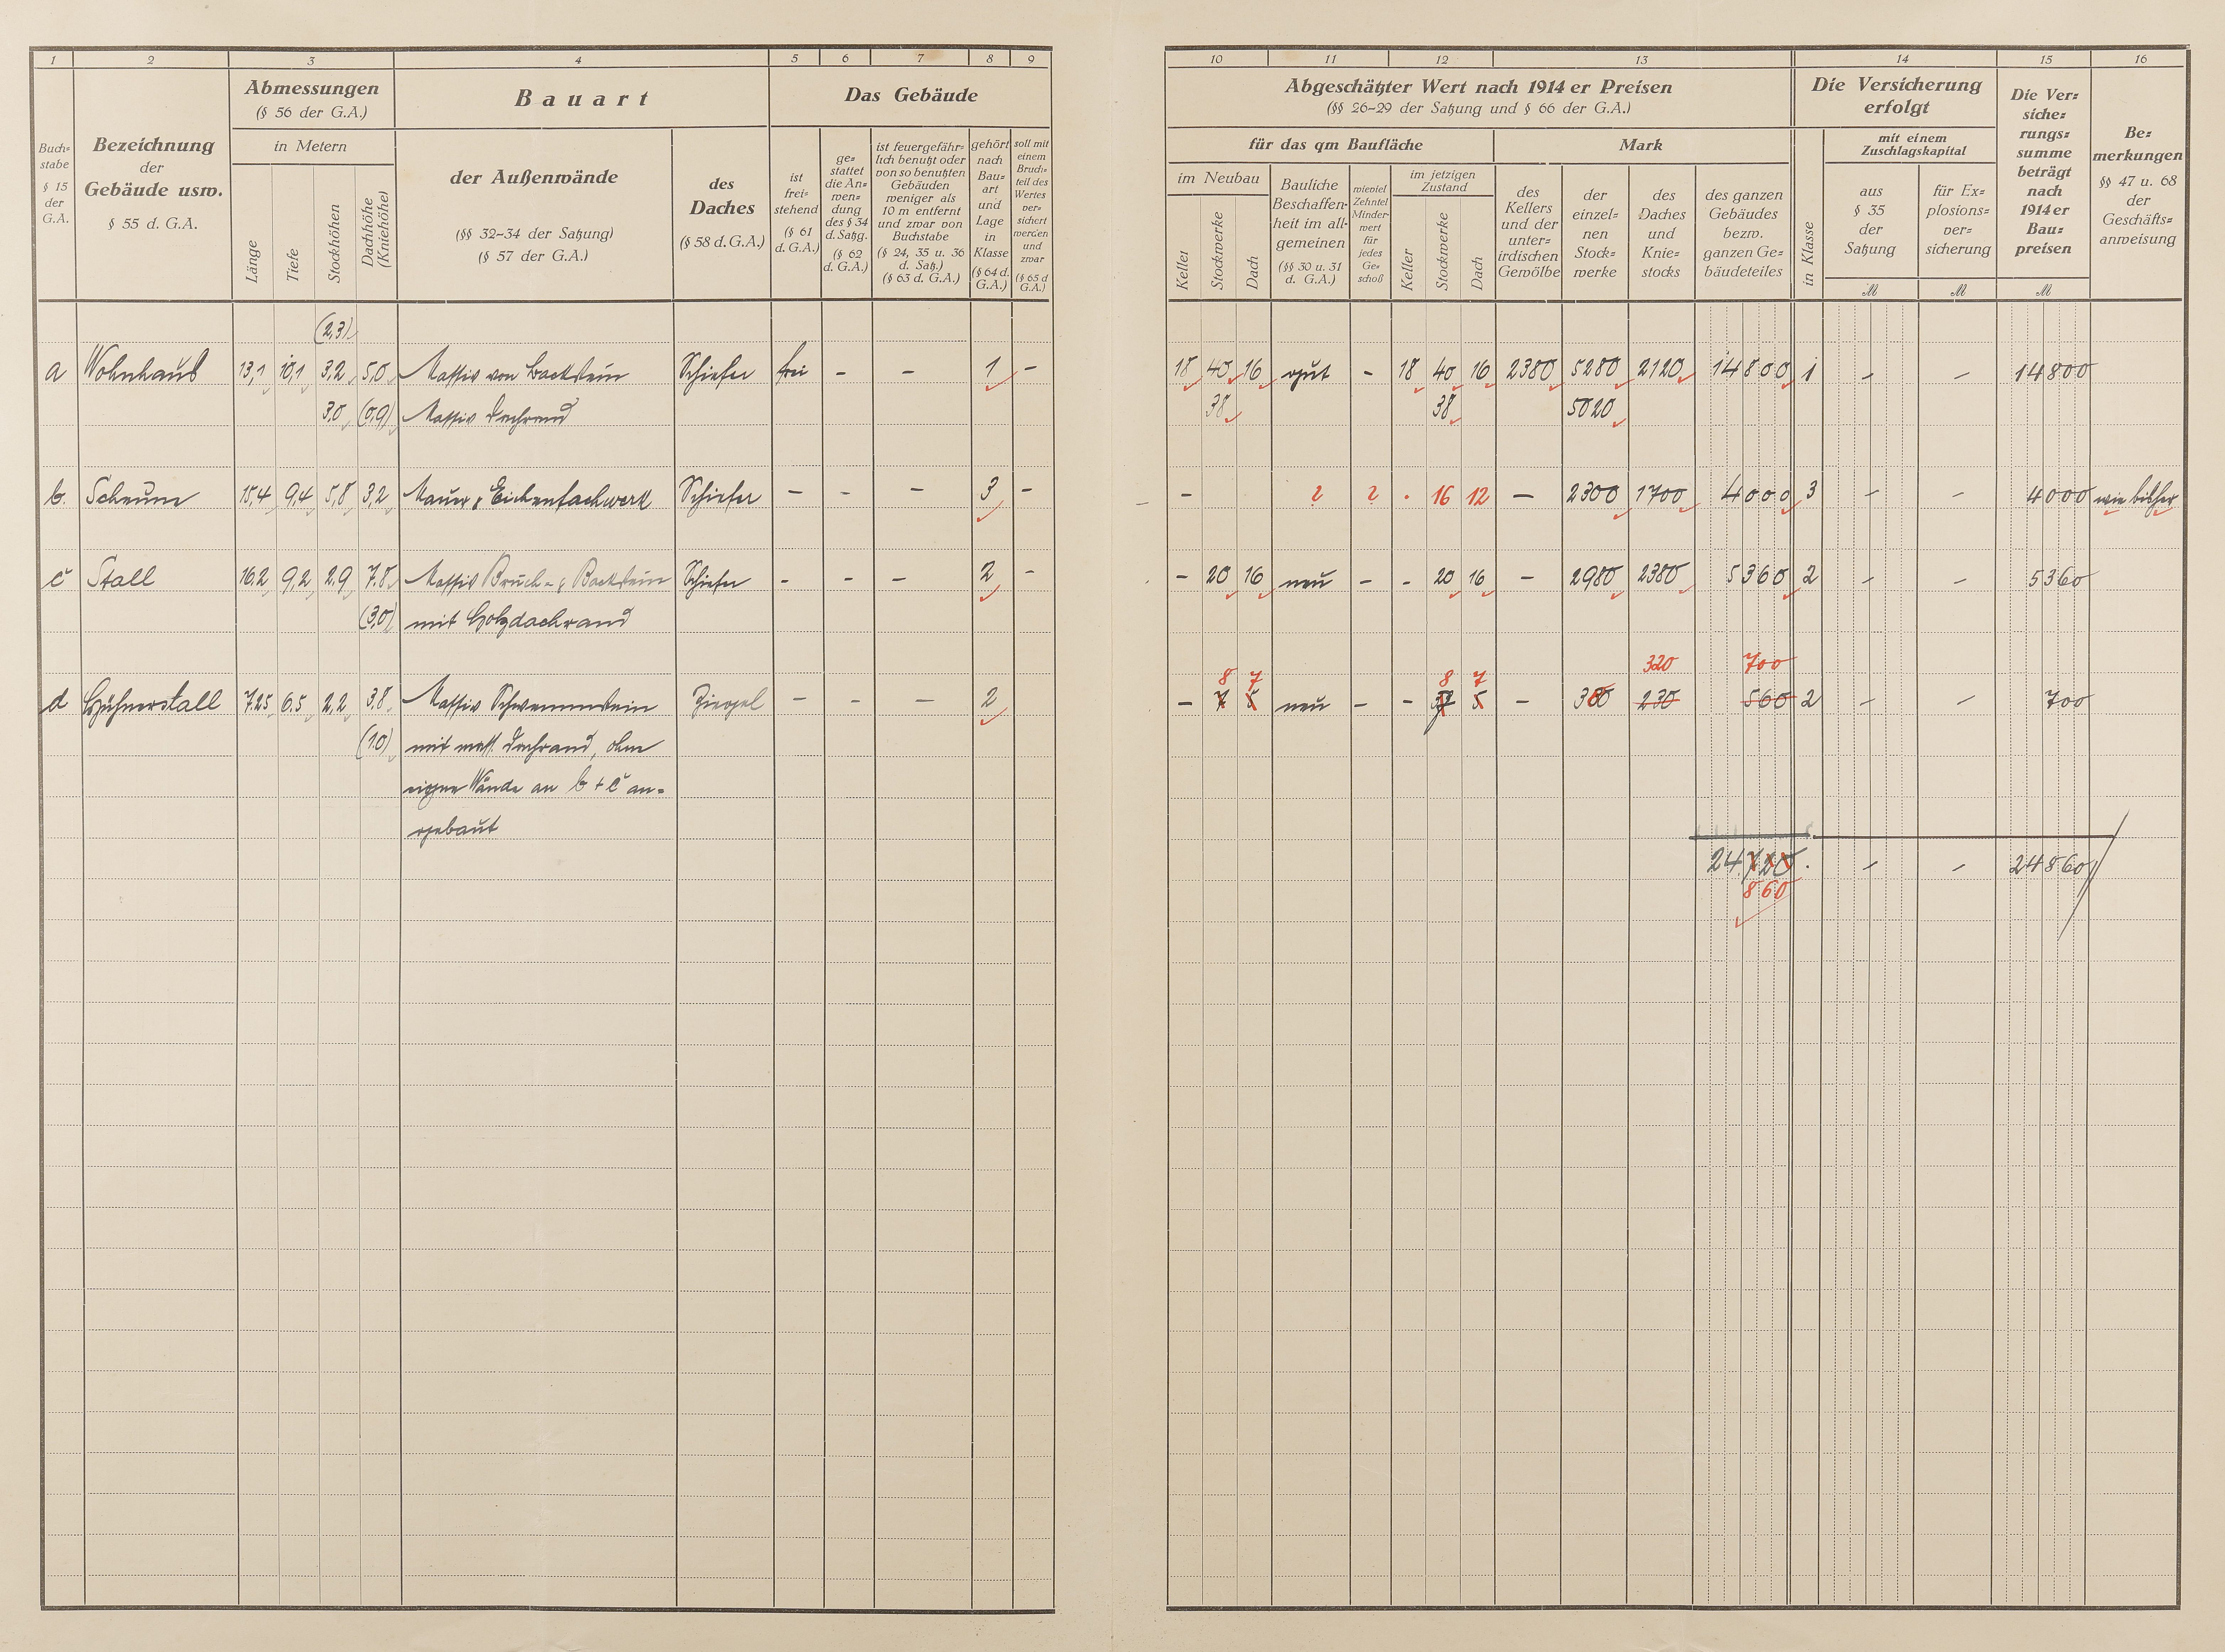 1 2 3 4 5 6 7 8 9
Buch-
stabe
§ 15
der
G.A.
Bezeichnung
der
Gebäude usw.
§ 55 d. G.A.
Abmessungen
(§ 56 der G.A.)
in Metern
Länge
Tiefe
Stockhöhen
Dachhöhe
(Kniehöhe)
Bauart
der Außenwände
(§§ 32-34 der Satzung)
(§ 57 der G.A.)
des
Daches
(§ 58 d. G.A.)
Das Gebäude
ist
frei-
stehend
(§ 61
d. G.A.)
ge-
stattet
die An-
wen-
dung
des § 34
d. Satzg.
(§ 62
d. G.A.)
ist feuergefähr-
lich benutzt oder
von so benutzten
Gebäuden
weniger als
10 m entfernt
und zwar von
Buchstabe
(§ 24, 35 u. 36
d. Satz.)
(§ 63 d. G.A.)
gehört
nach
Bau-
art
und
Lage
in
Klasse
(§ 64 d.
G.A.)
soll mit
einem
Bruch-
teil des
Wertes
ver-
sichert
werden
und
zwar
(§ 65 d
G.A.)
(2,3)
a Wohnhaus 13,1 10,1 3,2 5,0 Massiv von Backstein Schiefer frei - - 1 -
3,0 (0,9) Massiv Drehrand
b. Scheune 15,4 9,4 5,8 3,2 Mauer & Eichenfachwerk Schiefer - - - 3 -
c Stall 16,2 9,2 2,9 7,8 Massiv Bruch- & Backstein Schiefer - - - 2 -
(3,0) mit Holzdachrand
d Hühnerstall 7.25 6.5 2,2 3,8 Massiv Schwemmstein Ziegel - - - 2
(1,0) mit mass. Drehrand, ohne
eigene Wände an b + c an-
gebaut
10 11 12 13 14 15 16
Abgeschätzter Wert nach 1914 er Preisen
(§§ 26-29 der Satzung und § 66 der G.A.)
für das qm Baufläche
Mark
im Neubau
Keller
Stockwerke
Dach
Bauliche
Beschaffen-
heit im all-
gemeinen
(§§ 30 u. 31
d. G.A.)
wieviel
Zehntel
Minder-
wert
für
jedes
Ge-
schoß
im jetzigen
Zustand
Keller
Stockwerke
Dach
des
Kellers
und der
unter-
irdischen
Gewölbe
der
einzel-
nen
Stock-
werke
des
Daches
und
Knie-
stocks
des ganzen
Gebäudes
bezw.
ganzen Ge-
bäudeteiles
Die Versicherung
erfolgt
in Klasse
mit einem
Zuschlagskapital
aus
§ 35
der
Satzung
für Ex-
plosions-
ver-
sicherung
Die Ver-
siche-
rungs-
summe
beträgt
nach
1914 er
Bau-
preisen
Be-
merkungen
§§ 47 u. 68
der
Geschäfts-
anweisung
M M M
18 40 16 gut - 18 40 16 2380 5280 2120 14800 1 - - 14800
38 38 5020
- ? ? . 16 12 - 2300 1700 4000 3 - - 4000 wie bisher
- 20 16 neu - - 20 16 - 2980 2380 5360 2 - - 5360
8 7 8 7 320 700
- 7 5 neu - - 7 5 - 380 230 560 2 - - 700
24720. - - 24860
860